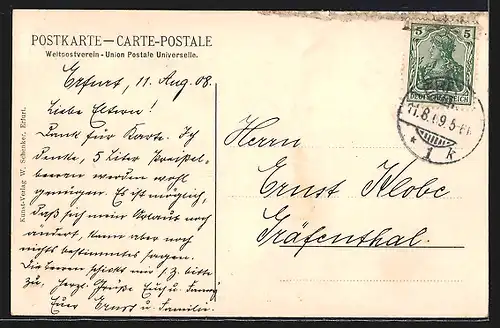 POSTKARTE — CARTE-POSTALE
Weltpostverein - Union Postale Universelle.
Erfurt, 11. Aug. 08.
Liebe Eltern!
Dank für Karte. Ich
denke, 5 Liter Preisel-
beeren werden wohl
genügen. Es ist möglich,
daß sich mein Urlaub noch
ändert, kann aber noch
nichts bestimmtes sagen.
Die Beeren schickt mir z. bitte
zu. Herzl. Grüße Euch u.
Euer Ernst u. Familie.
Kunst-Verlag W. Schenker, Erfurt.
Herrn
Ernst Klobe
Gräfenthal.
5 5
DEUTSCHES REICH
11.8. 9.5-6N
* 1 k